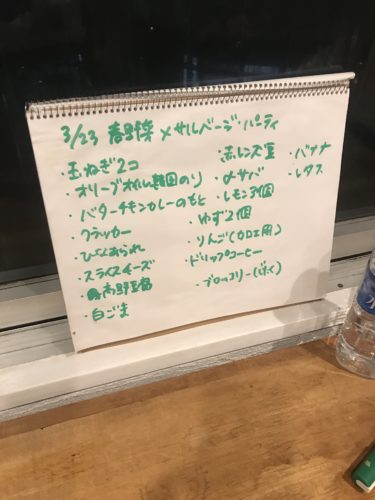 3/23 春野菜×サルベージ・パーティ
・玉ねぎ2コ
・オリーブオイル韓国のり
・バターチキンカレーのもと
・クラッカー
・ひなあられ
・スライスチーズ
・高野豆腐
・白ごま
・赤レンズ豆
・〆サバ
・レモン3個
・ゆず2個
・りんご(加工用)
・ドリップコーヒー
・ブロッコリー(けく)
・バナナ
・レタス